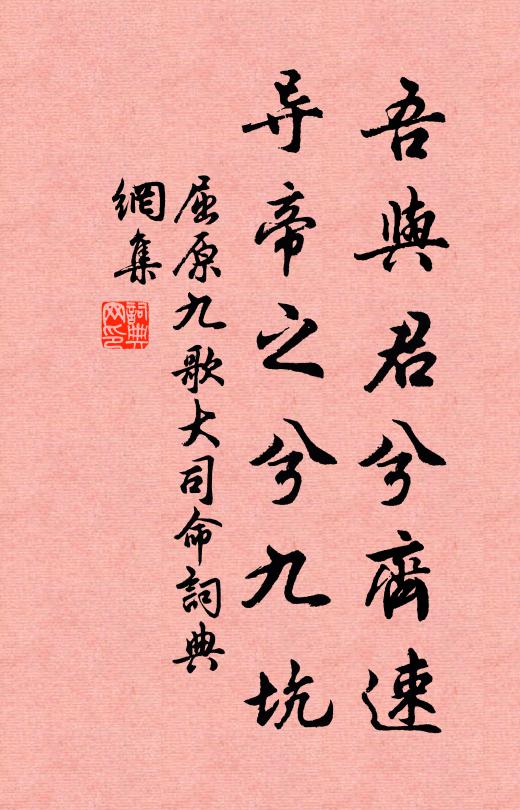 吾與君兮齊速
导帝之兮九坑
屈原九歌大司命詞典
網集
詞典网印